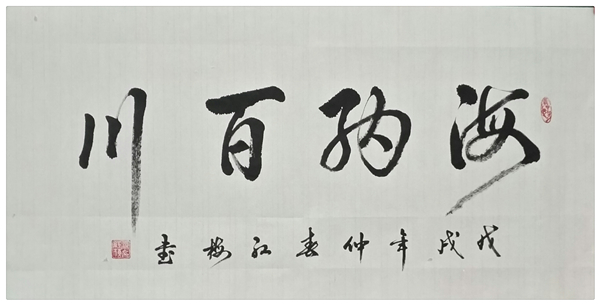 海纳百川
戊戌年仲春红梅书